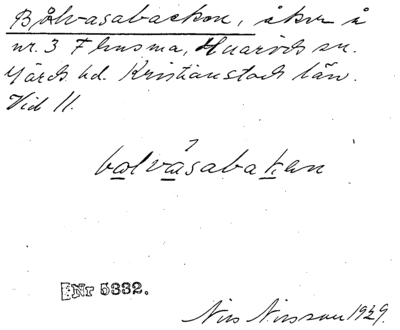 Bålvasabackon, åker å
nr. 3 Flinsma, Huaröds sn.
Gärds hd. Kristianstads län.
Vid 11.
bolvåsabakan
Nr 5332.
Nils Nilsson 1929.